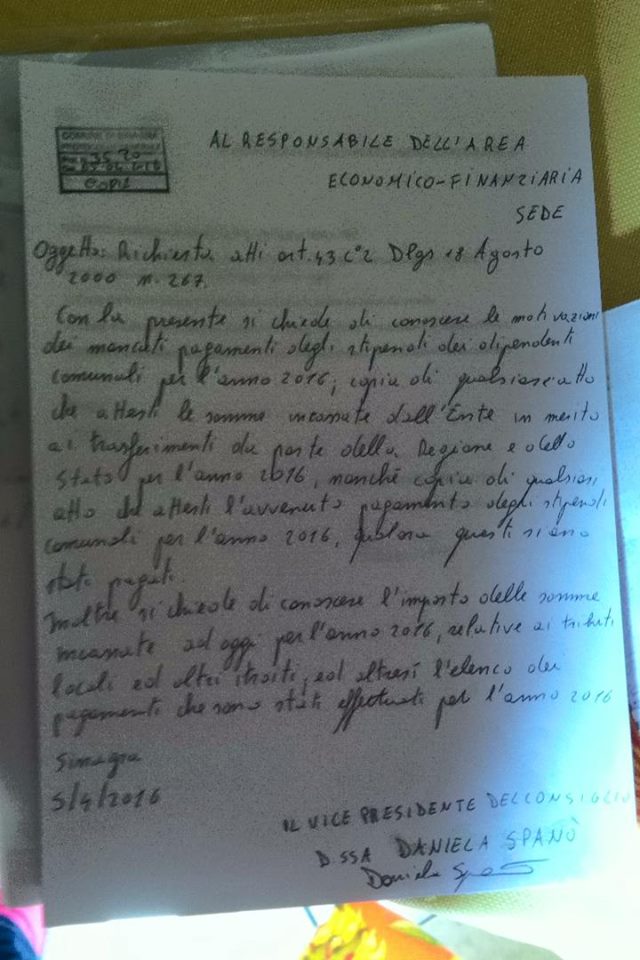 COMUNE DI SINAGRA
3520
COPIA
AL RESPONSABILE DELL'AREA
ECONOMICO-FINANZIARIA
SEDE
Oggetto: Richiesta atti art. 43 c°2 Dlgs 18 Agosto
2000 n. 267.
Con la presente si chiede di conoscere le motivazioni
dei mancati pagamenti degli stipendi dei dipendenti
comunali per l'anno 2016, copia di qualsiasi atto
che attesti le somme incassate dall'Ente in merito
ai trasferimenti da parte della Regione e dello
Stato per l'anno 2016, nonché copia di qualsiasi
atto che attesti l'avvenuto pagamento degli stipendi
comunali per l'anno 2016, qualora questi siano
stati pagati.
Inoltre si chiede di conoscere l'importo delle somme
incassate ad oggi per l'anno 2016, relative ai tributi
locali ed altri introiti, ed altresì l'elenco dei
pagamenti che sono stati effettuati per l'anno 2016
Sinagra
5/4/2016
IL VICE PRESIDENTE DEL CONSIGLIO
D.SSA DANIELA SPANÒ
Daniela Spanò